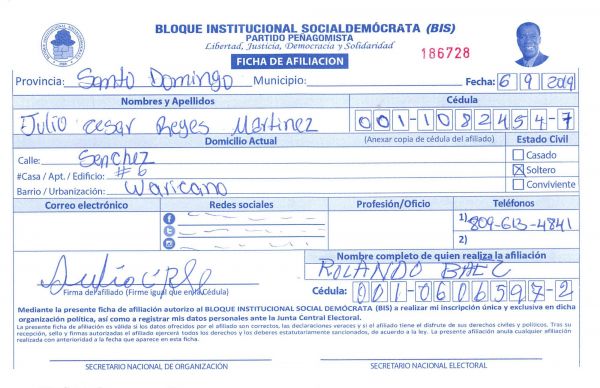 BLOQUE INSTITUCIONAL SOCIALDEMÓCRATA (BIS)
PARTIDO PEÑAGOMISTA
Libertad, Justicia, Democracia y Solidaridad
FICHA DE AFILIACION
186728
Provincia: Santo Domingo Municipio: Fecha: 6 9 2019
Nombres y Apellidos Cédula
Julio Cesar Reyes Martinez 001-1082454-7
Domicilio Actual (Anexar copia de cédula del afiliado) Estado Civil
Calle: Senchez Casado
#Casa / Apt. / Edificio: #6 Soltero
Barrio / Urbanización: Waricano Conviviente
Correo electrónico Redes sociales Profesión/Oficio Teléfonos
1) 809-613-4841
2)
Nombre completo de quien realiza la afiliación
ROLANDO BAEZ
Firma del afiliado (Firme igual que en la Cédula) Cédula: 001-0606597-2
Mediante la presente ficha de afiliación autorizo al BLOQUE INSTITUCIONAL SOCIAL DEMÓCRATA (BIS) a realizar mi inscripción única y exclusiva en dicha
organización política, así como a registrar mis datos personales ante la Junta Central Electoral.
La presente ficha de afiliación es válida si los datos ofrecidos por el afiliado son correctos, las declaraciones veraces y si el afiliado tiene el disfrute de sus derechos civiles y políticos. Tras su
recepción, sello y firmas autorizadas el afiliado ejercerá todos los derechos y los deberes estatutariamente sancionados, de acuerdo a la ley. La presente afiliación anula cualquier afiliación
realizada con anterioridad a la fecha que aparece en esta ficha.
SECRETARIO NACIONAL DE ORGANIZACIÓN SECRETARIO NACIONAL ELECTORAL